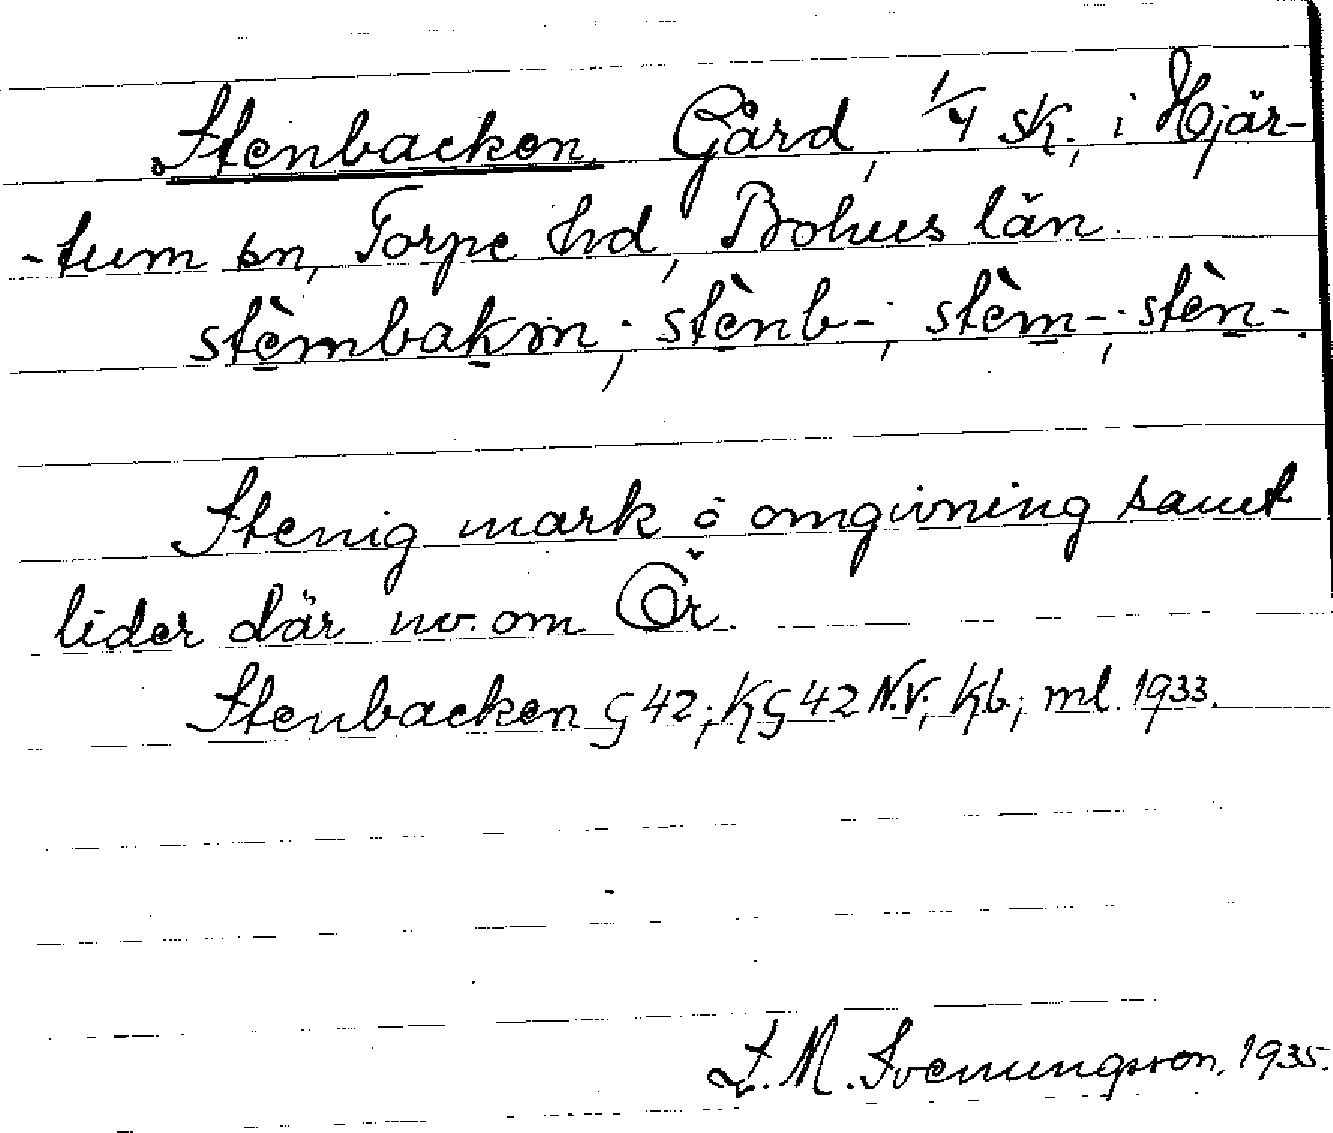 Stenbacken. Gård, 1/4 sk., i Hjär-
-tum sn, Torpe hd, Bohus län.
stèmbakm̥; stènb-; stèm-; stèn-.
Stenig mark å omgivning samt
lider där nv. om Ör.
Stenbacken G 42; KG 42 N.V; Kb; ml. 1933.
L. M. Svenungsson. 1935.